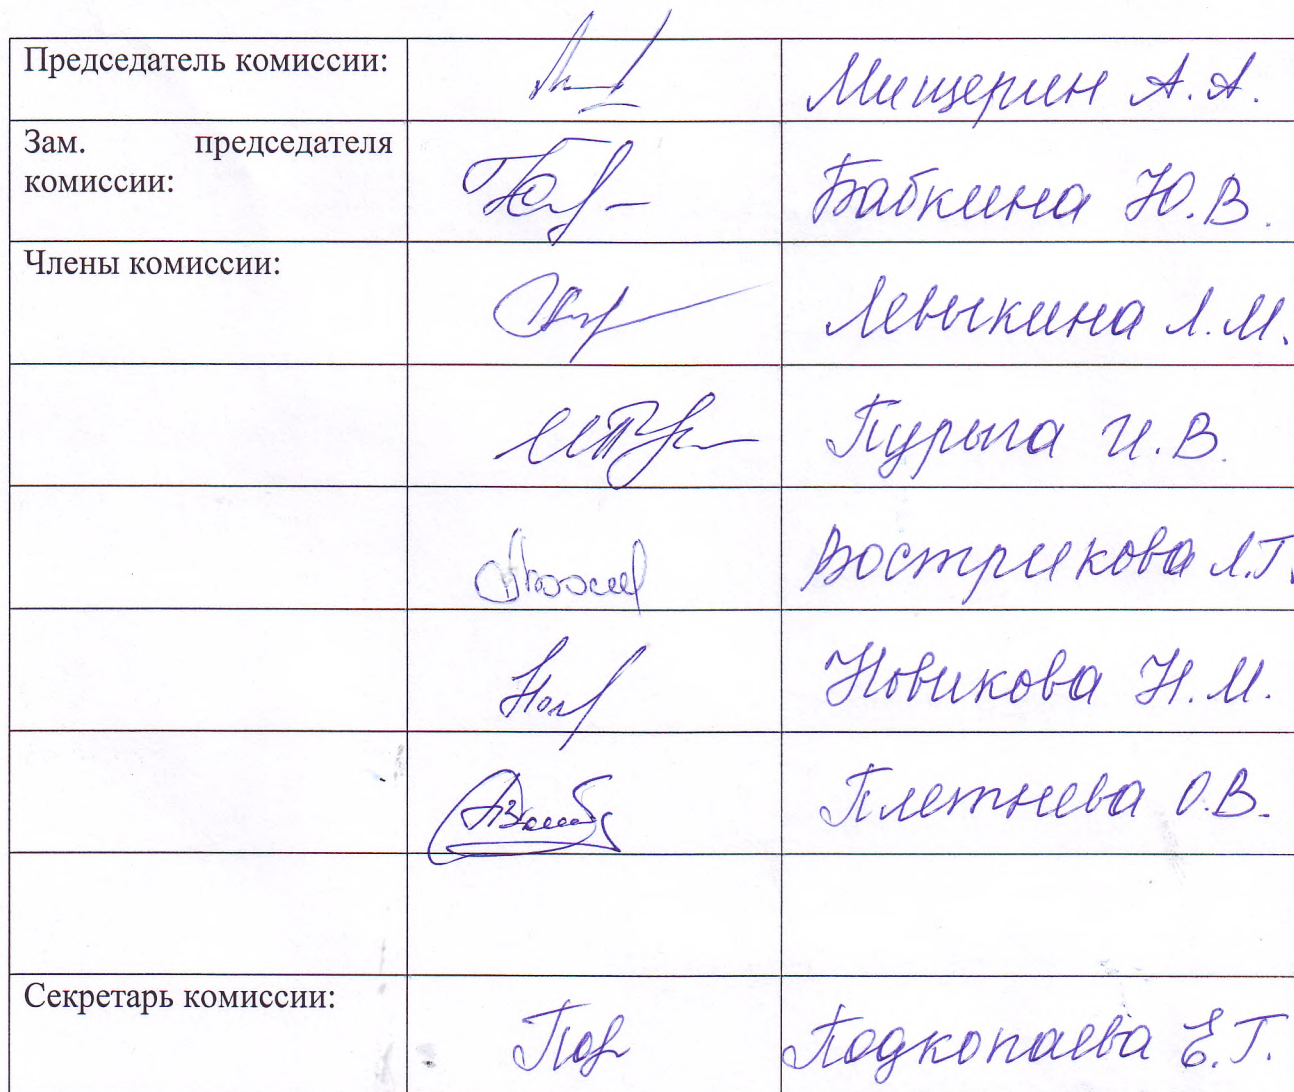 Председатель комиссии: Мищерин А.А.
Зам. председателя
комиссии: Бабкина Ю.В.
Члены комиссии: Левыкина Л.М.
Пурыга И.В.
Вострикова Л.Г.
Новикова Н.М.
Плетнева О.В.
Секретарь комиссии: Подкопаева Е.Г.